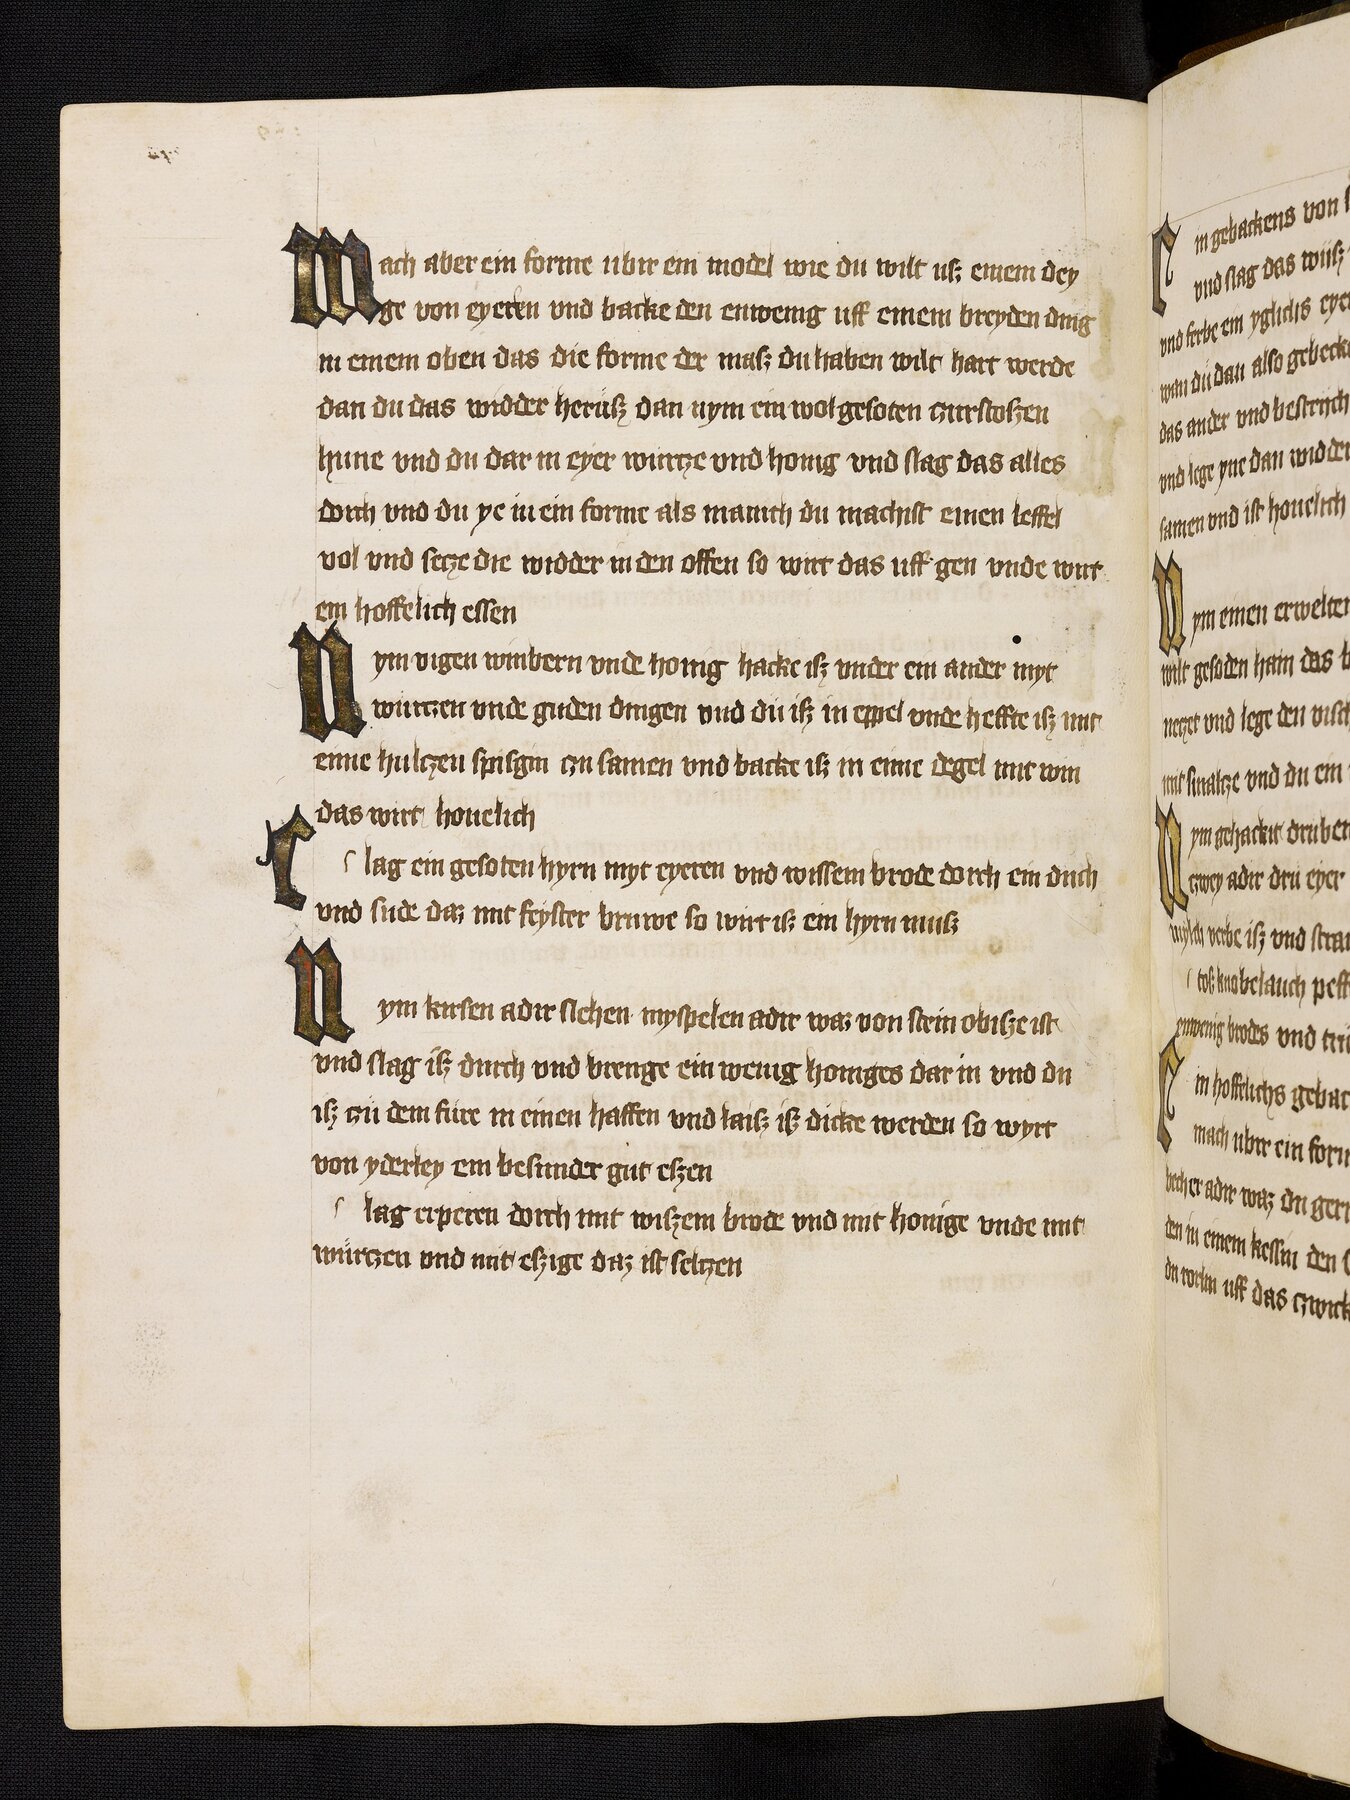 Mach aber ein forme ubir ein model wie du wilt usz einem dey
ge von eyeren vnd backe den enwenig uff einem breyden ding
in einem oben das die forme der masz du haben wilt hart werde
dan du das widder herusz dan nym ein wol gesoten czurstoszen
hune vnd du dar in eyer wurtze vnd honig vnd slag das alles
dorch vnd du ye in ein forme als manich du machist einen leffel
vol vnd setze die widder in den offen so wirt das uff gen vnde wirt
ein hoffelich essen
Nym vigen winbern vnde honig hacke isz vnder ein ander myt
wurtzen vnde guden dingen vnd du isz in eppel vnde heffte isz mit
eime hultzen spisgin czu samen vnd backe isz in eime degel mit win
das wirt houelich
Slag ein gesoten hyrn myt eyeren vnd wissem brode dorch ein duch
vnd sude daz mit feyster bruwe so wirt isz ein hyrn musz
Nym kirsen adir slehen myspelen adir waz von stein obisze ist
vnd slag isz durch vnd brenge ein wenig honiges dar in vnd du
isz czu dem fure in einen haffen vnd laisz isz dicke werden so wyrt
von yderley ein besunder gut eszen
slag erperen dorch mit wiszem brode vnd mit honige vnde mit
würczen vnd mit eszige daz ist seltzen
in gebackens von
vnd slag das wiisz
vnd ferbe ein yglichs eyer
wan du dan also gebecke
das ander vnd bestrich
vnd lege yne dan widder
samen vnd ist houelich
Nym einen erwelten
wilt gesoden hain das
netzet vnd lege den visch
mit smaltze vnd du ein
Nym gehackit druben
czwey adir dru eyer
mylch verbe isz vnd
knobelauch peff
enwenig brodes vnd
in hoffelichs gebac
mach ubir ein form
becher adir waz du gern
den in einem kessin den
du uff das czwick